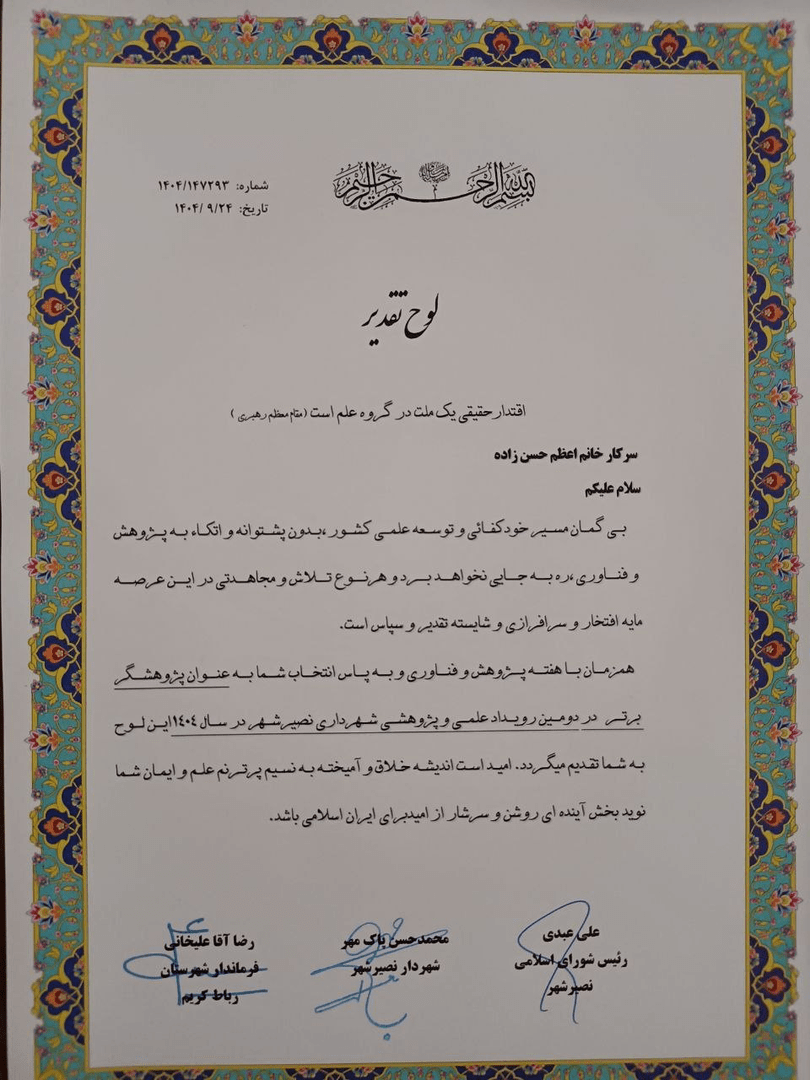 بسم الله الرحمن الرحیم
شماره: ۱۴۰۴/۱۴۷۲۹۳
تاریخ: ۱۴۰۴/ ۹/۲۴
لوح تقدیر
اقتدار حقیقی یک ملت در گروه علم است (مقام معظم رهبری )
سرکار خانم اعظم حسن زاده
سلام علیکم
بی گمان مسیر خودکفائی و توسعه علمی کشور ،بدون پشتوانه و اتکاء به پژوهش
و فناوری ،ره به جایی نخواهد برد و هر نوع تلاش و مجاهدتی در این عرصه
مایه افتخار و سرافرازی و شایسته تقدیر و سپاس است.
همزمان با هفته پژوهش و فناوری و به پاس انتخاب شما به عنوان پژوهشگر
برتر در دومین رویداد علمی و پژوهشی شهرداری نصیرشهر در سال ۱۴۰۴ این لوح
به شما تقدیم میگردد. امید است اندیشه خلاق و آمیخته به نسیم پرترنم علم و ایمان شما
نوید بخش آینده ای روشن و سرشار از امیدبرای ایران اسلامی باشد.
علی عبدی
رئیس شورای اسلامی
نصیرشهر
محمدحسن پاک مهر
شهردار نصیرشهر
رضا آقا علیخانی
فرماندار شهرستان
رباط کریم